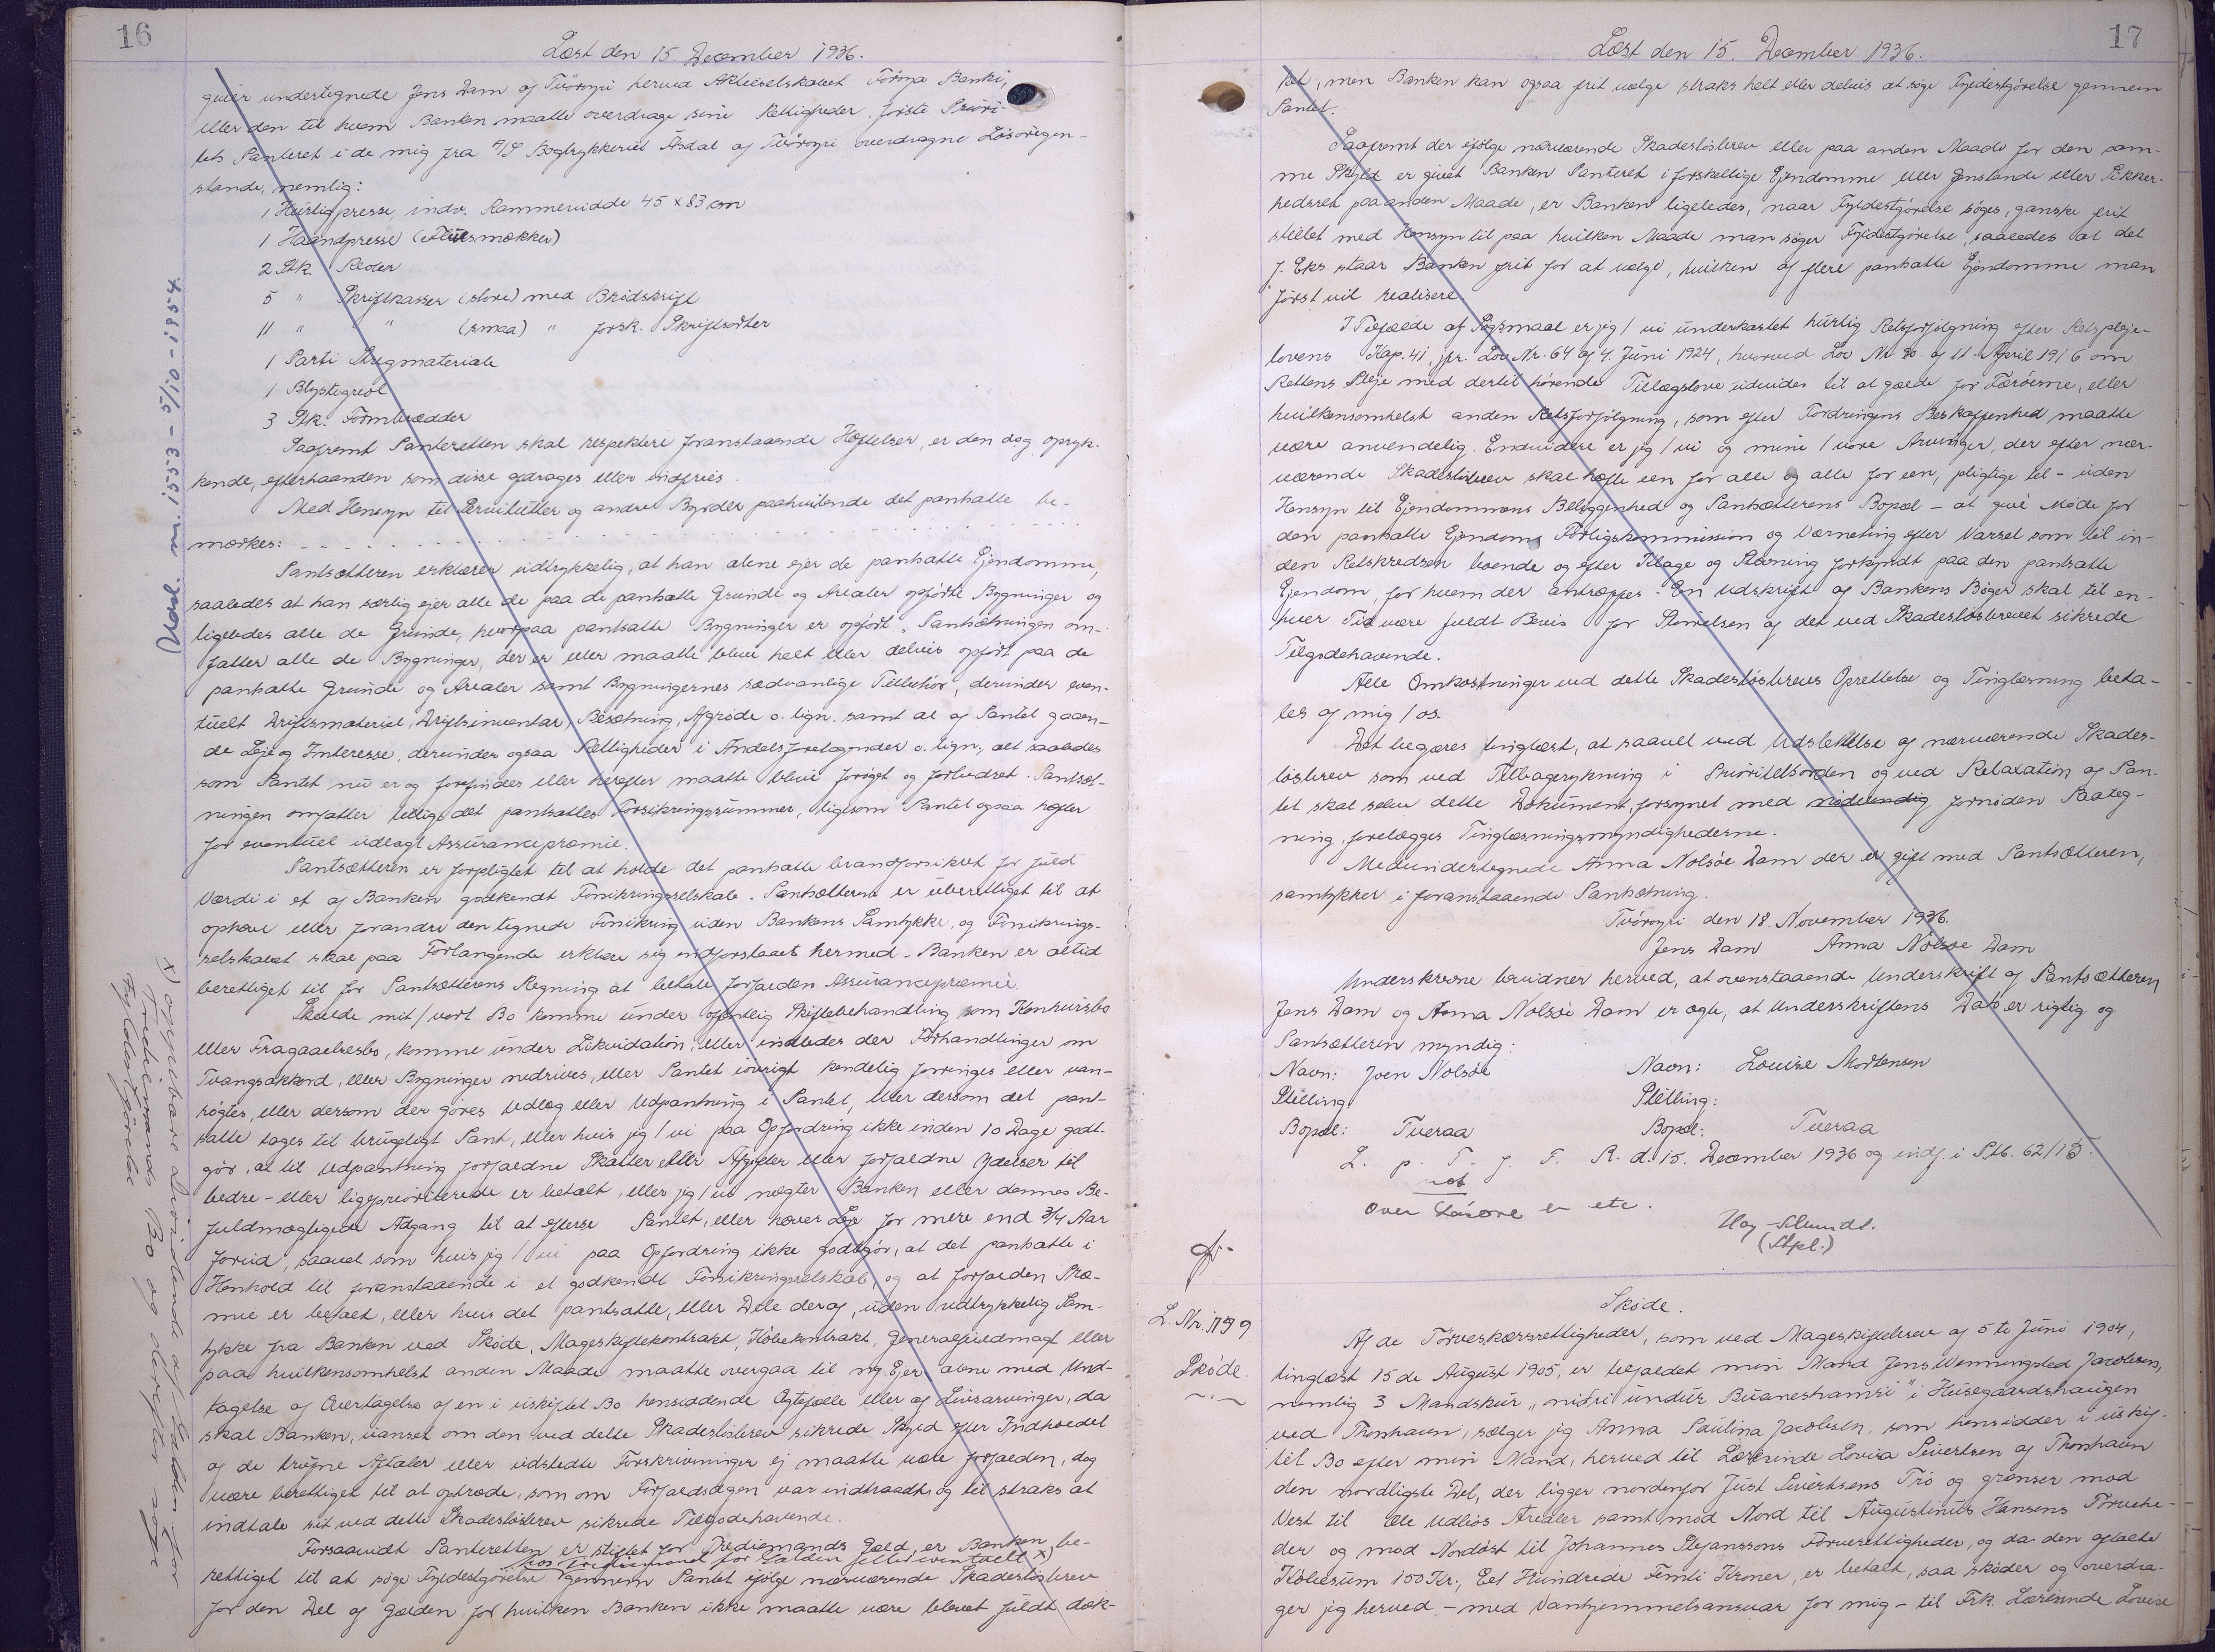 16
Læst den 15. December 1936.
giver undertegnede Jens Dam af Tvöroyri herved Aktieselskabet Föroya Banki,
eller den til hvem Banken maatte overdrage sine Rettigheder, første Priori-
tets Panteret i de mig fra A/S Bogtrykkeriet Åsdal af Tvöroyri overdragne Lösöregen-
stande, nemlig:
1 Hurtigpresse, indv. Rammevidde 45 x 83 cm
1 Haandpresse (Fluesmækker)
2 Stk. Reoler
5 " Skriftkasser (store) med Brödskrift
11 " " (smaa) " forsk. Skriftsorter
1 Parti Stegmateriale
1 Blystegreol
3 Stk. Formbrædder
Saafremt Panteretten skal respektere foranstaaende Hæftelser, er den dog opryk-
kende, efterhaanden som disse afdrages eller indfries.
Med Hensyn til Servitutter og andre Byrder paahvilende det pantsatte be-
mærkes: - - - - - - - - - - - - - - - - - - - - -
Pantsætteren erklærer udtrykkelig, at han alene ejer de pantsatte Ejendomme,
saaledes at han særlig ejer alle de paa de pantsatte Grunde og Arealer opförte Bygninger og
ligeledes alle de Grunde, hvorpaa pantsatte Bygninger er opfört. Pantsætningen om-
fatter alle de Bygninger, der er eller maatte blive helt eller delvis opfört paa de
pantsatte Grunde og Arealer samt Bygningernes sædvanlige Tilbehör, derunder even-
tuelt Driftsmateriel, Driftsinventar, Besætning, Afgröde o. lign. samt al af Pantet gaaen-
de Leje og Interesse, derunder ogsaa Rettigheder i Andelsforetagender o. lign., alt saaledes
som Pantet nu er og forefindes eller herefter maatte blive foröget og forbedret. Pantsæt-
ningen omfatter tillige det pantsattes Forsikringssummer, ligesom Pantet ogsaa hæfter
for eventuel udlagt Assurancepræmie.
Pantsætteren er forpligtet til at holde det pantsatte brandforsikret for fuld
Værdi i et af Banken godkendt Forsikringsselskab. Pantsætteren er uberettiget til at
ophæve eller forandre den tegnede Forsikring uden Bankens Samtykke, og Forsikrings-
selskabet skal paa Forlangende erklære sig indforstaaet hermed. Banken er altid
berettiget til for Pantsætterens Regning at betale forfalden Assurancepræmie.
Skulde mit/vort Bo komme under offentlig Skiftebehandling som Konkursbo
eller Fragaaelsesbo, komme under Likvidation, eller indledes der Forhandlinger om
Tvangsakkord, eller Bygninger nedrives, eller Pantet iövrigt kendelig forringes eller van-
røgtes, eller dersom der göres Udlæg eller Udpantning i Pantet, eller dersom det pant-
satte tages til brugeligt Pant, eller hvis jeg/vi paa Opfordring ikke inden 10 Dage godt-
gör, at til Udpantning forfaldne Skatter eller Afgifter eller forfaldne Ydelser til
bedre- eller ligeprioriterede er betalt, eller jeg/vi nægter Banken eller dennes Be-
fuldmægtigede Adgang til at efterse Pantet, eller hæver Leje for mere end 3/4 Aar
forud, saavel som hvis jeg/vi paa Opfordring ikke godtgör, at det pantsatte i
Henhold til foranstaaende i et godkendt Forsikringsselskab, og at forfalden Præ-
mie er betalt, eller hvis det pantsatte, eller Dele deraf, uden udtrykkelig Sam-
tykke fra Banken ved Sköde, Mageskiftekontrakt, Köbekontrakt, Generalfuldmagt eller
paa hvilkensomhelst anden Maade maatte overgaa til ny Ejer alene med Und-
tagelse af Overtagelse af en i uskiftet Bo hensiddende Ægtefælle eller af Livsarvinger, da
skal Banken, uanset om den ved dette Skadeslösbrev sikrede Skyld efter Indholdet
af de trufne Aftaler eller udstedte Forskrivninger ej maatte være forfalden, dog
være berettiget til at optræde, som om Forfaldsdagen var indtraadt og til straks at
indtale sit ved dette Skadeslösbrev sikrede Tilgodehavende.
Forsaavidt Panteretten er stiftet for Trediemands Gæld, er Banken be-
hos Trediemand for Gælden eller eventuelt x)
rettiget til at söge Fyldestgörelse gennem Pantet ifölge nærværende Skadeslösbrev
for den Del af Gælden, for hvilken Banken ikke maatte være blevet fuldt dæk-
(Udsl. m. 1553 - 5/10 - 1954.
x) opgiver
Trediemands Bo og derefter söge
Fyldestgörelse
17
Læst den 15. December 1936.
ket, men Banken kan ogsaa frit vælge straks helt eller delvis at söge Fyldestgörelse gennem
Pantet.
Saafremt der ifölge nærværende Skadeslösbrev eller paa anden Maade for den sam-
me Skyld er givet Banken Panteret i forskellige Ejendomme eller Genstande eller Sikker-
hedsret paa anden Maade, er Banken ligeledes, naar Fyldestgörelse söges, ganske frit
stillet med Hensyn til paa hvilken Maade man söger Fyldestgörelse, saaledes at det
f. Eks. staar Banken frit for at vælge, hvilken af flere pantsatte Ejendomme man
först vil realisere.
I Tilfælde af Sögsmaal er jeg/vi underkastet hurtig Retsforfölgning efter Retspleje-
lovens Kap. 41, jfr. Lov Nr. 64 af 4. Juni 1924, hvorved Lov Nr. 90 af 11. April 1916 om
Rettens Pleje med dertil hörende Tillægslove udvides til at gælde for Færöerne, eller
hvilkensomhelst anden Retsforfölgning, som efter Fordringens Beskaffenhed maatte
være anvendelig. Endvidere er jeg/vi og mine/vore Arvinger, der efter nær-
værende Skadeslösbrev skal hæfte een for alle og alle for een, pligtige til - uden
Hensyn til Ejendommens Beliggenhed og Pantsætterens Bopæl - at give Möde for
den pantsatte Ejendoms Forligskommission og Værneting efter Varsel som til in-
den Retskredsen boende og efter Klage og Stævning forkyndt paa den pantsatte
Ejendom, for hvem der antræffes. En Udskrift af Bankens Böger skal til en-
hver Tid være fuldt Bevis for Störrelsen af det ved Skadeslösbrevet sikrede
Tilgodehavende.
Alle Omkostninger ved dette Skadeslösbrevs Oprettelse og Tinglæsning beta-
les af mig/os.
Det begæres tinglæst, at saavel ved Udslettelse af nærværende Skades-
lösbrev som ved Tilbagerykning i Prioritetsorden og ved Relaxation af Pan-
tet skal selve dette Dokument, forsynet med nödvendig fornöden Paateg-
ning, forelægges Tinglæsningsmyndighederne.
Medundertegnede Anna Nolsöe Dam der er gift med Pantsætteren,
samtykker i foranstaaende Pantsætning.
Tvöroyri den 18. November 1936.
Jens Dam Anna Nolsöe Dam
Underskrevne bevidner herved, at ovenstaaende Underskrift af Pantsætteren
Jens Dam og Anna Nolsöe Dam er ægte, at Underskriftens Dato er rigtig og
Pantsætteren myndig:
Navn: Joen Nolsöe Navn: Louise Mortensen
Stilling: Stilling:
Bopæl: Tveraa Bopæl: Tveraa
L. p. T. f. F. R. d. 15. December 1936 og indf. i S.Pb. 62/15.
Over Lösöre er etc.
(Stpl.)
L. Nr. 1799
Sköde.
Sköde.
Af de Törveskærsrettigheder, som ved Mageskiftebrev af 5te Juni 1904,
tinglæst 15de August 1905, er tilfaldet min Mand Jens Wenningsted Jacobsen,
nemlig 3 Mandskur "niðri undir Búaneshamri" i Husegaardshaugen
ved Thorshavn, sælger jeg Anna Paulina Jacobsen, som hensidder i uskif-
tet Bo efter min Mand, herved til Lærerinde Lovisa Sivertsen af Thorshavn
den nordligste Del, der ligger nordenfor Just Sivertsens Trö og grænser mod
Vest til de Udlös Arealer samt mod Nord til Augustinus Hansens Törvehe-
der og mod Nordöst til Johannes Stefanssons Törverettigheder, og da den aftalte
Köbesum 150 Kr., Eet Hundrede Femti Kroner, er betalt, saa sköder og overdra-
ger jeg herved - med Vanhjemmelsansvar for mig - til Frk. Lærerinde Lovise